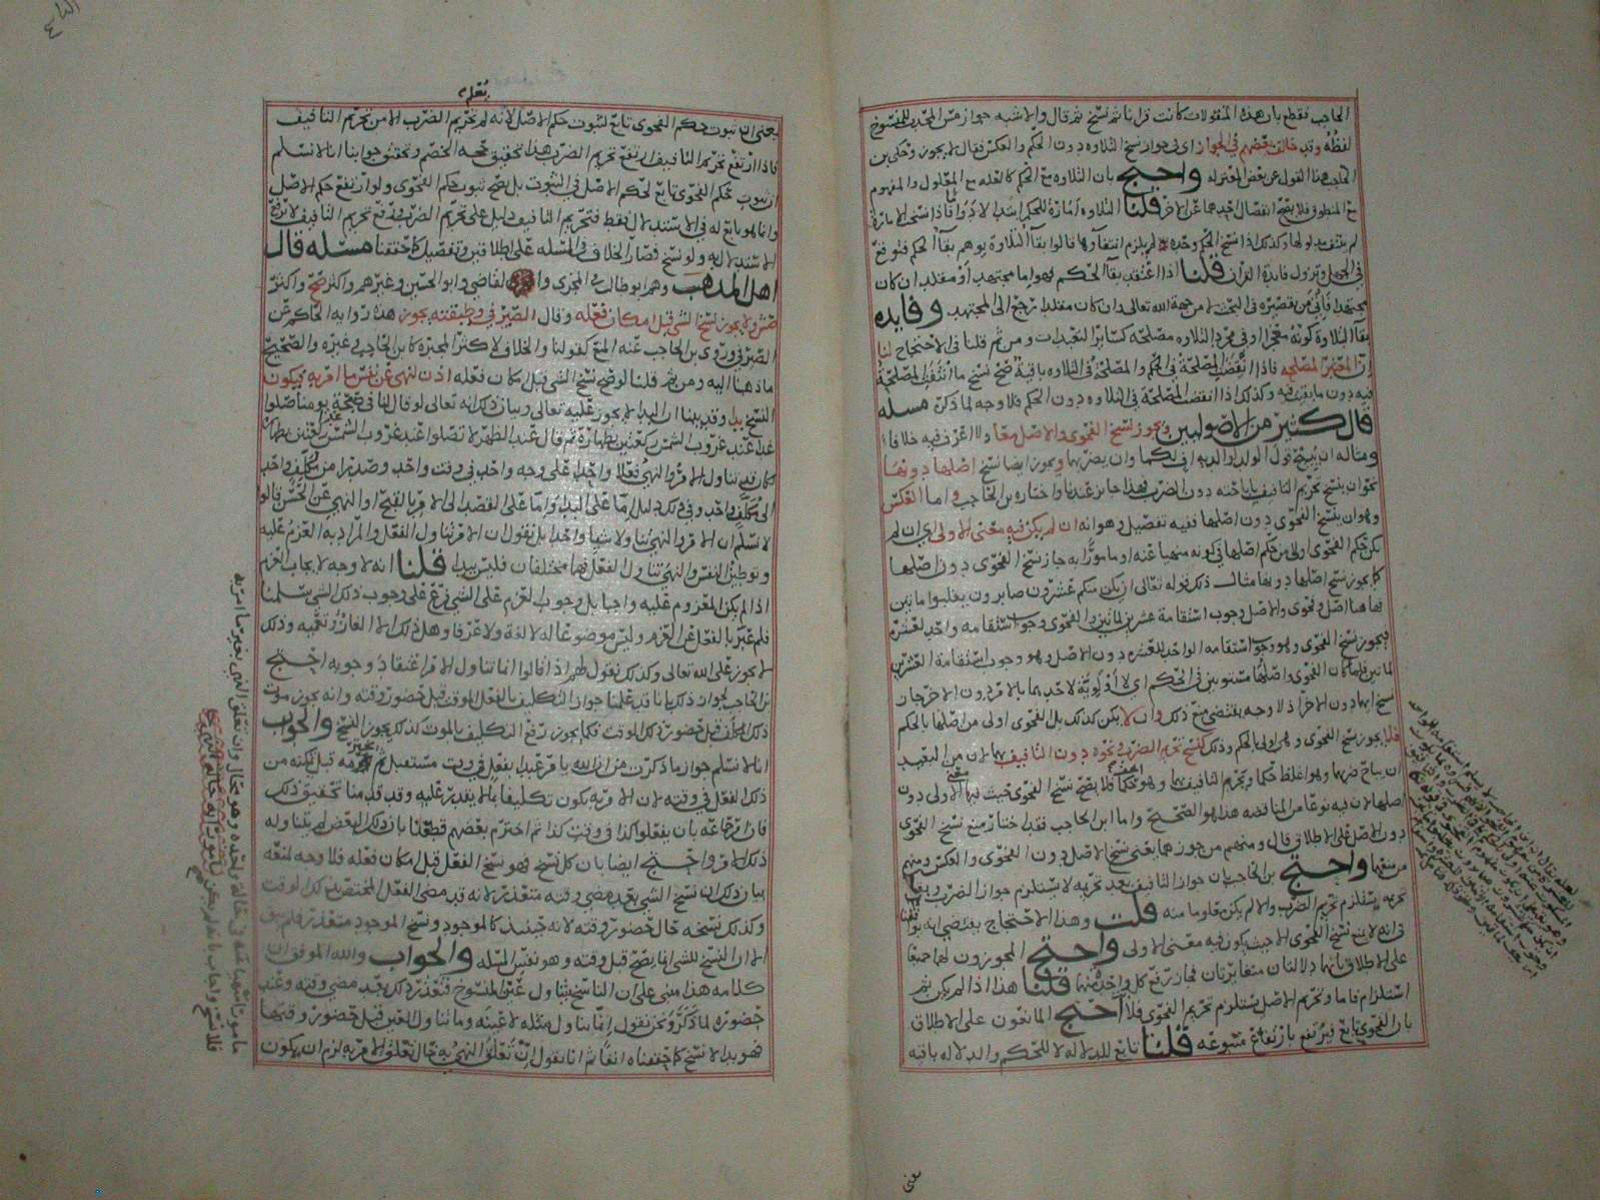 الحاجب فقطع بان هذه المنقولات كانت قرانا ثم نسخ ثم قال والاشبه جواز مس المحدث للمنسوخ
لفظه وقد خالف بعضهم في الجواز اي في جواز نسخ التلاوه دون الحكم والعكس فقال لا يجوز وحكى بن
الحاجب هذا القول عن بعض المعتزله واحتج بان التلاوه مع الحكم كالعله مع المعلول والمفهوم
مع المنطوق فلا يصح انفصال احدهما عن الاخر قلنا التلاوه امارة للحكم ابتدا لا دواما فاذا نسخ الامارة
لم ينتف مدلولها وكذلك اذا نسخ الحكم وحده لم يلزم انتفاؤها قالوا بقاء التلاوة يوهم بقاء الحكم فتوقع
في الجهل وتزول فايدة القران قلنا اذا اعتقد بقا الحكم فهو اما مجتهد او مقلد ان كان
مجتهدا فاتي من تقصيره في البحث لا من جهة الله تعالى وان كان مقلدا رجع الى المجتهد وفايده
بقا التلاوة كونه معجزا وفي مجرد التلاوه مصلحة كساير التعبدات ومن ثم قلنا في الاحتجاج لنا
ان المعتبر المصلحه فاذا انقضت المصلحة في الحكم والمصلحة في التلاوه باقية صح نسخ ما انتفت المصلحة
فيه دون ما بقيت فيه وكذلك اذا انقضت المصلحة في التلاوه دون الحكم فلا وجه لما ذكر مسله
قال كثير من الاصوليين ويجوز نسخ الفحوى والاصل معا ولا اعرف فيه خلافا
ومثاله ان يبيح قول الولد لوالديه اف لكما وان يضربهما ويجوز ايضا نسخ اصلها دونها
نحو ان ينسخ تحريم التافيف باباحته دون الضرب فهذا جايز عندنا واختاره بن الحاجب واما العكس
وهو ان ينسخ الفحوى دون اصلها ففيه تفصيل وهو انه ان لم يكن فيه معنى الاولى اي ان لم
يكن حكم الفحوى اولى من حكم اصلها في كونه منهيا عنه او مامورا به جاز نسخ الفحوى دون اصلها
كما يجوز نسخ اصلها دونها مثال ذلك قوله تعالى ان يكن منكم عشرون صابرون يغلبوا مايتين
فهاهنا اصل وفحوى والاصل وجوب استقامة عشرين لمايتين والفحوى وجوب استقامه واحد لعشره
فيجوز نسخ الفحوى وهو وجوب استقامه الواحد للعشره دون الاصل وهو وجوب استقامة العشرين
لمايتين فلما كان الفحوى واصلها مستويين في الحكم اي لا اولوية لاحدهما بالامر دون الاخر جاز
نسخ ايهما دون الاخر اذ لا وجه يقتضي منع ذلك وان لا يكن كذلك بل الفحوى اولى من اصلها بالحكم
فلا يجوز نسخ الفحوى وهي اولى بالحكم وذلك كنسخ تحريم الضرب ونحوه دون التافيف بها لان من البعيد
ان يباح ضربها وهو اغلظ حكما ويحرم التافيف بها فلا يصح نسخ الفحوى حيث فيها معنى الاولى دون
اصلها لان فيه نوعا من المناقضه هذا هو الصحيح واما ابن الحاجب فقد اختار منع نسخ الفحوى
دون الاصل على الاطلاق قال ومنهم من جوزهما يعني نسخ الاصل دون الفحوى والعكس ومنهم
من منعهما واحتج بن الحاجب بان جواز التافيف بعد تحريمه لا يستلزم جواز الضرب وبقا
تحريمه يستلزم تحريم الضرب والا لم يكن معلوما منه قلت وهذا الاحتجاج يقتضي انه يوافقنا
في انه لا يمنع نسخ الفحوى الا حيث يكون فيه معنى الاولى واحتج المجوزون لهما جميعا
على الاطلاق بانهما دلالتان متغايرتان فجاز رفع كل واحدة منهما قلنا هذا اذا لم يكن ثم
استلزام فاما وتحريم الاصل يستلزم تحريم الفحوى فلا احتج المانعون على الاطلاق
بان الفحوى تابع فيرتفع بارتفاع متبوعه قلنا تابع للدلاله لا للحكم والدلاله باقيه
يعني
يعني ان ثبوت حكم الفحوى تابع لثبوت حكم الاصل لانه لم يعلم تحريم الضرب الا من تحريم التافيف
فاذا ارتفع تحريم التافيف ارتفع تحريم الضرب هذا تحقيق حجه الخصم وتحقيق جوابنا انا لا نسلم
ان ثبوت حكم الفحوى تابع لحكم الاصل في الثبوت بل يصح ثبوت حكم الفحوى ولو ارتفع حكم الاصل
وانما هو تابع له في الاستدلال فقط فتحريم التافيف دليل على تحريم الضرب ورفع تحريم التافيف لا يرفع
الاستدلال به ولو نسخ فصار الخلاف في المسله على اطلاقين وتفصيل كما حققنا مسله قال
اهل المذهب وهم ابوطالب والقاضي وابو الحسين وغيرهم واكثر
ولا يجوز نسخ الشي قبل امكان فعله وقال الصيرفي وطبقته يجوز هذه رواية الحاكم عن
الصيرفي وروى بن الحاجب عنه المنع كقولنا والخلاف لاكثر المجبره كابن الحاجب وغيره والصحيح
ماذهبنا اليه ومن ثم قلنا لو صح نسخ الشي قبل امكان فعله اذن لنهى عن نفس ما امر به فيكون
النسخ بدا وقد بينا ان البدا لا يجوز عليه تعالى وبيان ذلك انه تعالى لو قال لنا في صحيحة يومنا صلوا
غدا عند غروب الشمس ركعتين بطهارة ثم قال عند الظهر لا تصلوا عند غروب الشمس ركعتين بطهارة
كان قد تناول الامر والنهي فعلا واحدا على وجه واحد في وقت واحد وصدرا من مكلف واحد
الى مكلف واحد وفي ذلك دليل اما على البدا واما على القصد الى الامر بالقبيح او النهي عن الحسن قالوا
لا نسلم ان الامر والنهي تناولا شيا واحدا بل نقول ان الامر تناول الفعل والمراد به العزم عليه
وتوطين النفس والنهي تناول الفعل فهما مختلفان فليس ببدا قلنا انه لا وجه لايجاب العزم
اذا لم يكن المعزوم عليه واجبا بل وجوب العزم على الشي فرع على وجوب ذلك الشي سلمنا
فلم عبر بالفعل عن العزم وليس موضوعا له لا لغة ولا عرفا وهل ذلك الا الغاز وتعميه وذلك
لا يجوز على الله تعالى وكذلك نقول لهم اذا قالوا انما تناول الامر اعتقاد وجوبه احتج
بن الحاجب لجواز ذلك بانا قد علمنا جواز التكليف بالفعل الموقت قبل حضور وقته وانه يجوز موت
ذلك المكلف قبل حضور ذلك الوقت فكما يجوز رفع التكليف بالموت كذلك يجوز النسخ والجواب
انا لا نسلم جواز ما ذكرت من ان الله يامر عبدا بفعل في وقت مستقبل ثم يخترمه قبل تمكنه من
ذلك الفعل في وقته لان الامر به يكون تكليفا بما لا يقدر عليه وقد قدمنا تحقيق ذلك
فان امر جماعه بان يفعلوا كذا في وقت كذا ثم اخترم بعضهم قطعنا بان ذلك البعض لم يتناوله
ذلك الامر واحتج ايضا بان كل نسخ فهو نسخ الفعل قبل امكان فعله فلا وجه لمنعه
بيان ذلك ان نسخ الشي بعد مضي وقته متعذر لانه قد مضى الفعل المختص بذلك الوقت
وكذلك نسخه حال حضور وقته لانه حينئذ كالموجود ونسخ الموجود متعذر فلم يبق
الا ان النسخ للشي انما يصح قبل وقته وهو نفس المسله والجواب والله الموفق ان
كلامه هذا مبني على ان الناسخ يتناول عين المنسوخ فتعذر ذلك بعد مضي وقته وعند
حضوره لما ذكر ونحن نقول انما يتناول مثله لا عينه وما تناول العين قبل حضور وقتها
فهو بدا لا نسخ كما حققناه انفا ثم انا نقول ان تعلق النهي به حال تعلق الامر به لزم ان يكون
مامورا منهيا عنه في حالة واحده وهو محال وان تعلق النهي بغير ما امر به
فلا نسخ واجاب